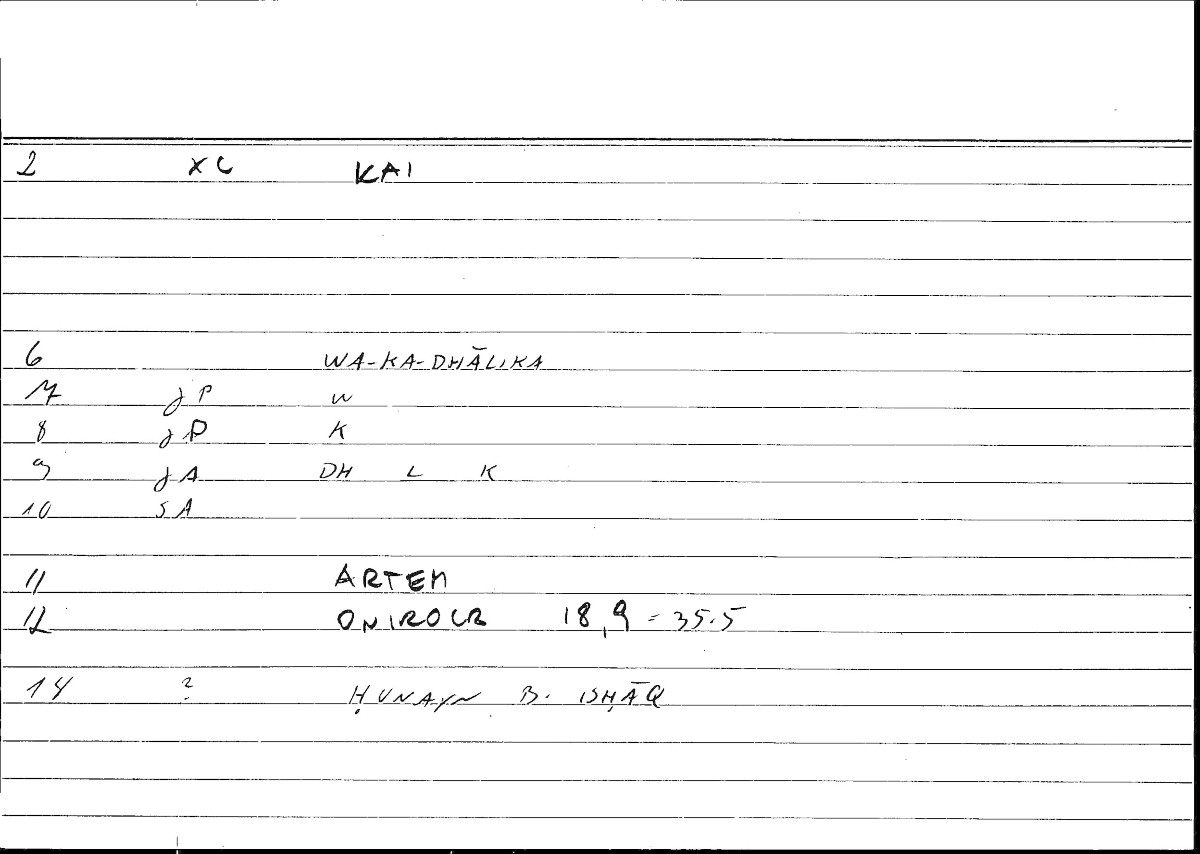 2 XC KAI
6 WA-KA-DHĀLIKA
7 JP W
8 JP K
9 JA DH L K
10 SA
11 ARTEM
12 ONIROCR 18,9 = 35.5
14 ? ḤUNAYN B. ISḤĀQ